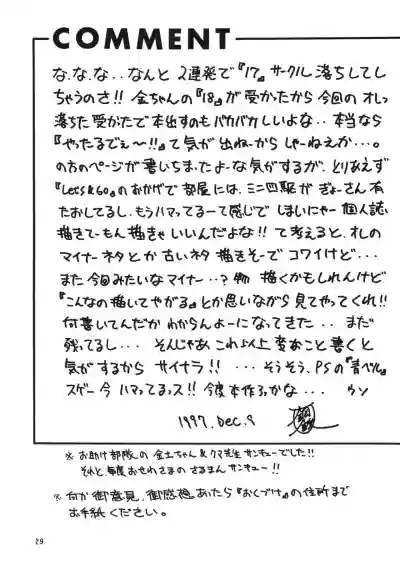 COMMENT
な、な、な‥なんと 2連発で『17』サークル落ちしてし
ちゃうのさ!! 金ちゃんの『18』が受かったから今回のオレっ
落ちた受かたで本出すのもバカバカしいよな‥本当なら
『やったるでぇ〜!!』て気が出ねーからしゃーねぇか…。
の方のページが書いちまったよーな気がするが、とりあえず
『Let's&Go』のおかげで部屋には、ミニ四駆がぎょーさん有
たおしてるし、もうハマってるーて感じで しまいにゃー個人誌
描きてーもん描きゃいいんだよな!!て考えると、オレの
マイナーネタとか古いネタ描きそーでコワイけど…
また今回みたいなマイナー‥?物 描くかもしれんけど
『こんなの描いてやがる』とか思いながら見てやってくれ!!
何書いてんだかわからんよーになってきた‥まだ
残ってるし… そんじゃあこれ以上変なこと書くと
気がするからサイナラ!! …そうそう、PSの『青ベル』
スゲー今ハマってるっス!!今度本作ろかな… ウソ
1997. Dec. 9
※お助け部隊の金土ちゃん&クマ先生サンキューでした!!
それと毎度おせわさまのさるまんサンキュー!!
※何か御意見、御感想あったら『おくづけ』の住所まで
お手紙ください。
29